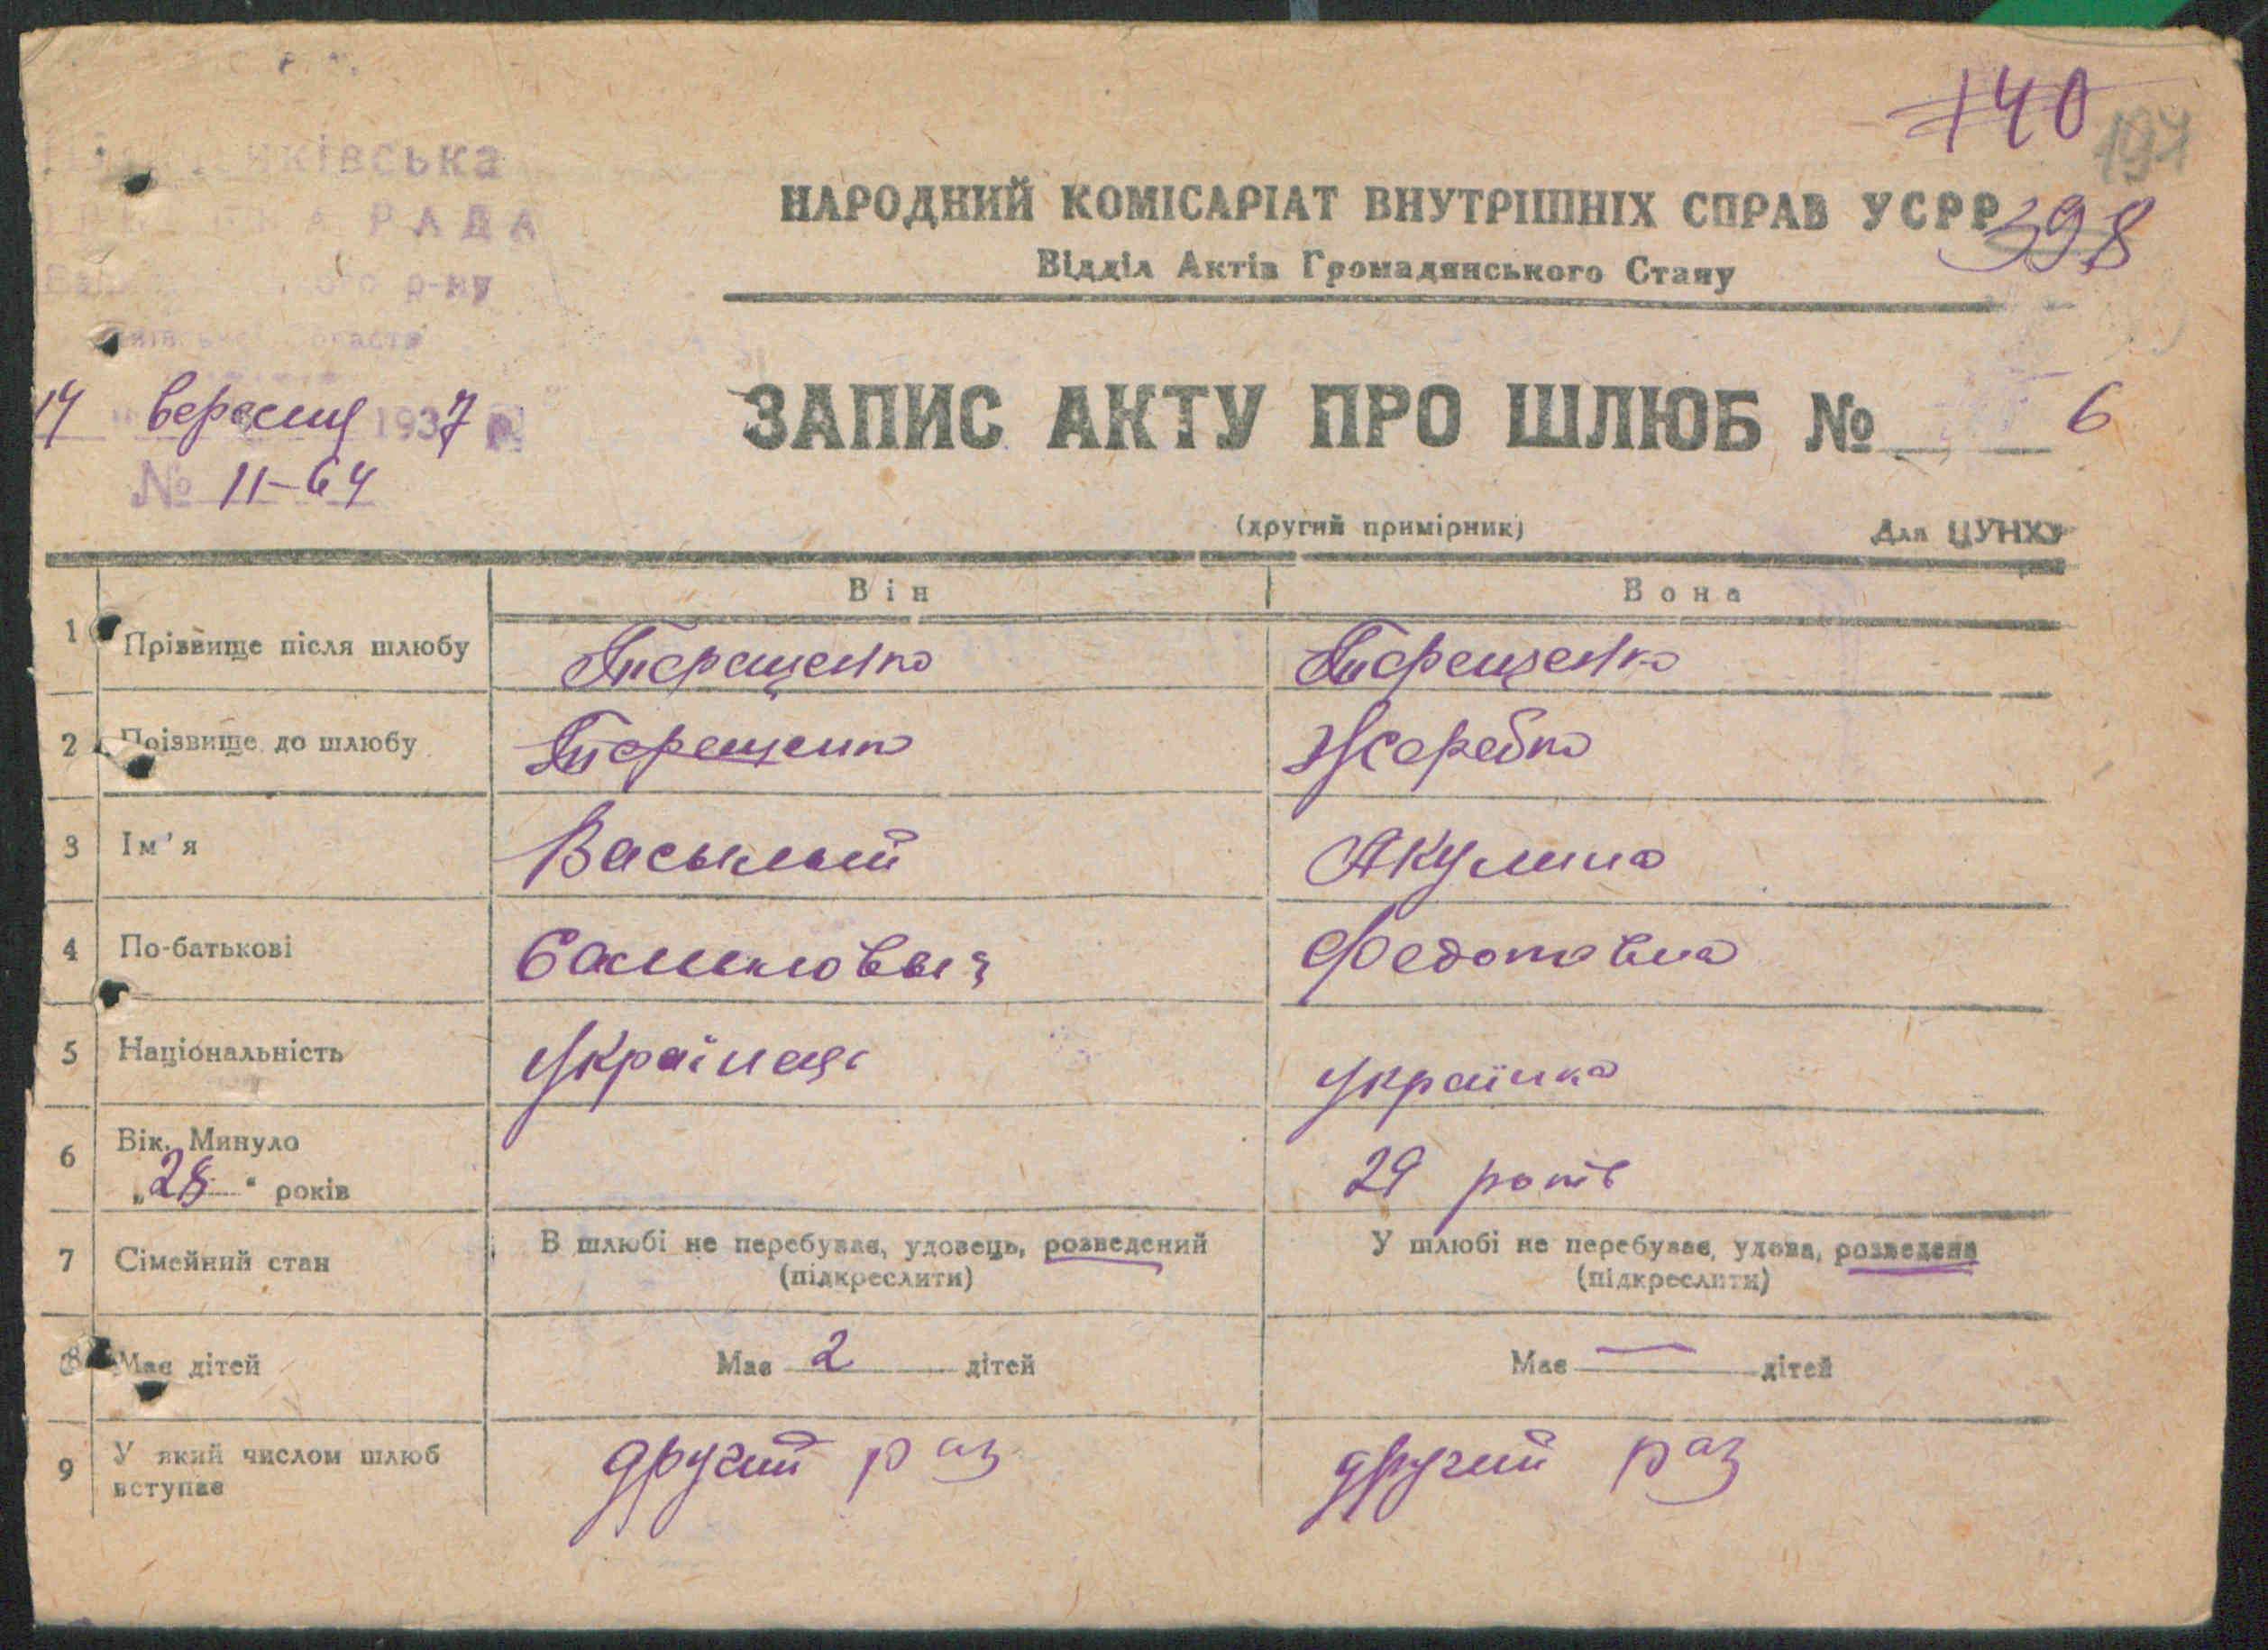 140
197
398
РАДА
р-ну
НАРОДНИЙ КОМІСАРІАТ ВНУТРІШНІХ СПРАВ УСРР
Відділ Актів Громадянського Стану
14 вересня 1937 р.
№ 11-64
ЗАПИС АКТУ ПРО ШЛЮБ № 6
(другий примірник) Для ЦУНХУ
Він Вона
1 Прізвище після шлюбу Терещенко Терещенко
2 Прізвище до шлюбу Терещенко Жеребко
3 Ім'я Васылий Акулина
4 По-батькові Федотовна
5 Національність Українець Українка
6 Вік. Минуло
„28“ років 29 років
7 Сімейний стан В шлюбі не перебуває, удовець, розведений У шлюбі не перебуває, удова, розведена
(підкреслити) (підкреслити)
8 Має дітей Має 2 дітей Має — дітей
9 У який числом шлюб вступає другий раз другий раз